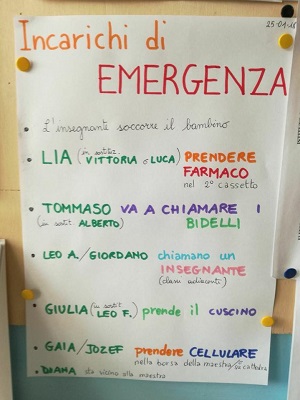 25-01-18
Incarichi di
EMERGENZA
• L'insegnante soccorre il bambino
• LIA (in sostituz. VITTORIA o LUCA) PRENDERE
FARMACO
nel 2° cassetto
• TOMMASO VA A CHIAMARE I
(in sostit. ALBERTO) BIDELLI
• LEO A./GIORDANO chiamano un
INSEGNANTE
(classi adiacenti)
• GIULIA (in sostit. LEO F.) prende il CUSCINO
• GAIA/JOZEF prendere CELLULARE
nella borsa della maestra/su cattedra
• DIANA sta vicino alla maestra